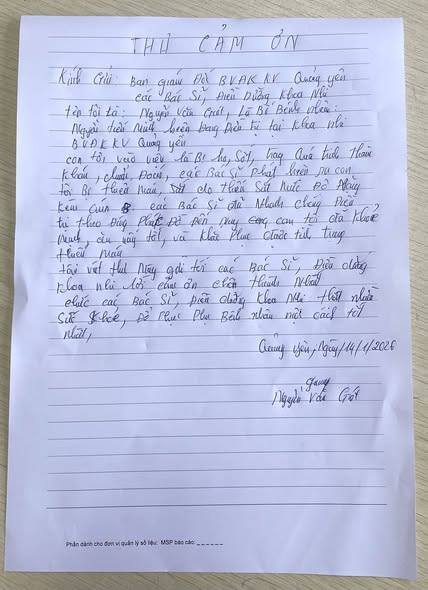 THƯ CẢM ƠN
Kính Gửi: Ban giám Đốc BVĐK KV Quảng yên
các Bác Sĩ, Điều Dưỡng Khoa Nhi
tên tôi là: Nguyễn Văn Gát, Là Bố Bệnh nhân:
Nguyễn tiến Minh hiện Đang Điều trị tại Khoa nhi
BVĐK KV Quảng yên
con tôi vào viện là Bị ho, Sốt, trong Quá trình thăm
Khám, chuẩn Đoán, các Bác Sĩ Phát hiện ra con
tôi Bị thiếu máu, do thiếu Sắt
kèm các Bác Sĩ đã Nhanh chóng Điều
trị theo Đúng Phác Đồ Đến nay con tôi đã Khỏe
Mạnh, ăn uống tốt, và Khắc Phục được tình trạng
thiếu máu
tôi viết thư này gửi tới các Bác Sĩ, Điều dưỡng
Khoa nhi lời cảm ơn chân thành Nhất
chúc các Bác Sĩ, Điều dưỡng Khoa Nhi thật nhiều
Sức Khỏe, Để Phục Phụ Bệnh nhân một cách tốt
nhất,
Quảng yên, Ngày/14/1/2026
Nguyễn Văn Gát
Phần dành cho đơn vị quản lý số liệu: MSP báo cáo: _ _ _ _ _ _